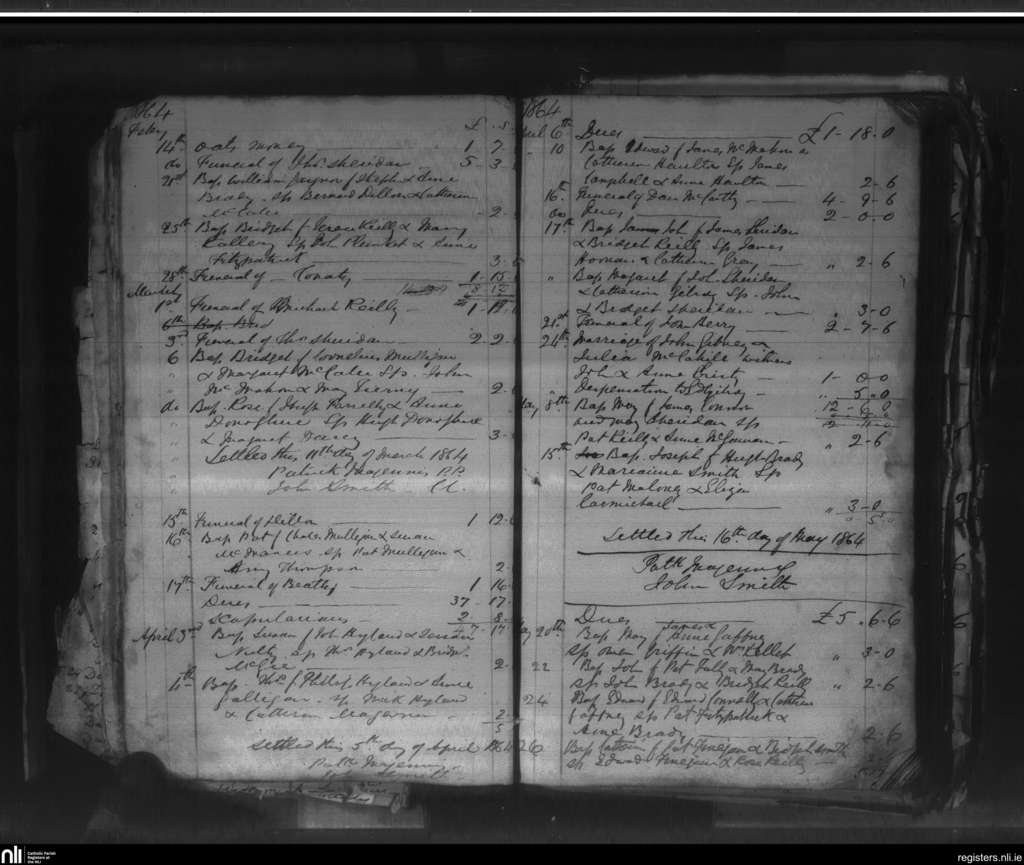 1864
Feby £ . s
14th oats money 1 7
do Funeral of Thos Sheridan 5 - 3
21st Bap William Jayson f Steph & Anne
Brady Sp Bernard Dillon & Catherine
McCabe - 2 -
25th Bap Bridget f Reilly & Mary
Sp John Plunket & Anne
Fitzpatrick 3 -
28th Funeral of Conaty 1 - 15
March 8 12
1st Funeral of Michael Reilly 1 - 12
6th Bap
3rd Funeral of Thos Sheridan 2 2 -
6 Bap Bridget f Cornelius Mulligan
" & Margaret McCabe Sps. John
" McMahon & May Tierney 2 -
do Bap. Rose f Joseph & Anne
" Donoghue Sp Hugh Donoghue
" & Margaret 3 -
" Settled this 11th day of March 1864
" Patrick Magennis P.P.
" John Smith C.C.
15th Funeral of Dillon 1 12 -
16th Bap Pat f Charles Mulligan & Susan
McManus Sp Pat Mulligan &
Amy Thompson 2 -
17th Funeral of Beatty 1 16 -
Dues 37 - 17 -
Scapularians 2 - 8 -
April 3rd Bap Susan f John Hyland &
Nulty s.p Thos Hyland & Bridt
McGee 2 -
4th Bap. Thos f Hyland & Anne
Galligan - sp Hyland
& Catherine 2 -
5
Settled this 5th day of April 1864
Patk Magennis
John Smith
1864
April 6th Dues £ 1 - 18 . 0
" 10 Bap Edward f James McMahon &
Catherine Hamilton Sp James
Campbell & Anne Hamilton 2 - 6
16th Funeral of Dan McCarthy 4 - 9 - 6
do Dues 2 - 0 - 0
17th Bap John f James Sheridan
& Bridget Reilly Sp James
& Catherine Gray " 2 - 6
" Bap Margaret f John Sheridan
& Catherine Gilroy Sp. John
& Bridget Sheridan " 3 - 0
21st Funeral of John Berry 2 - 7 - 6
24th Marriage of John Gibney &
Julia McCahill witness
John & Anne 1 - 0 - 0
Despensation to " 5 . 0
12 - 6 . 0
May 8th Bap May f James Connor
and May Sheridan Sp
Pat Reilly & Anne McGowan " 2 - 6
15th Bap. Joseph f Hugh Brady
& Marianne Smith Sp
Pat Maloney & Eliza
Carmichael " 3 - 0
Settled this 16th day of May 1864
Patk Magennis
John Smith
Dues £ 5 . 6 - 6
May 20th Bap May f James & Anne Gaffney
sp Owen Griffin & " 3 - 0
22 Bap John f Pat Fall & May Brady
sp John Brady & Bridget Reilly " 2 - 6
24 Bap Edward f Edward Connolly & Catherine
Gaffney sp Pat Fitzpatrick &
Anne Brady 2 - 6
26 Bap Catherine f Pat Finegan & Bridget Smith
sp Edward Finegan & Rose Reilly
nli
Catholic Parish
Registers at
the NLI
registers.nli.ie